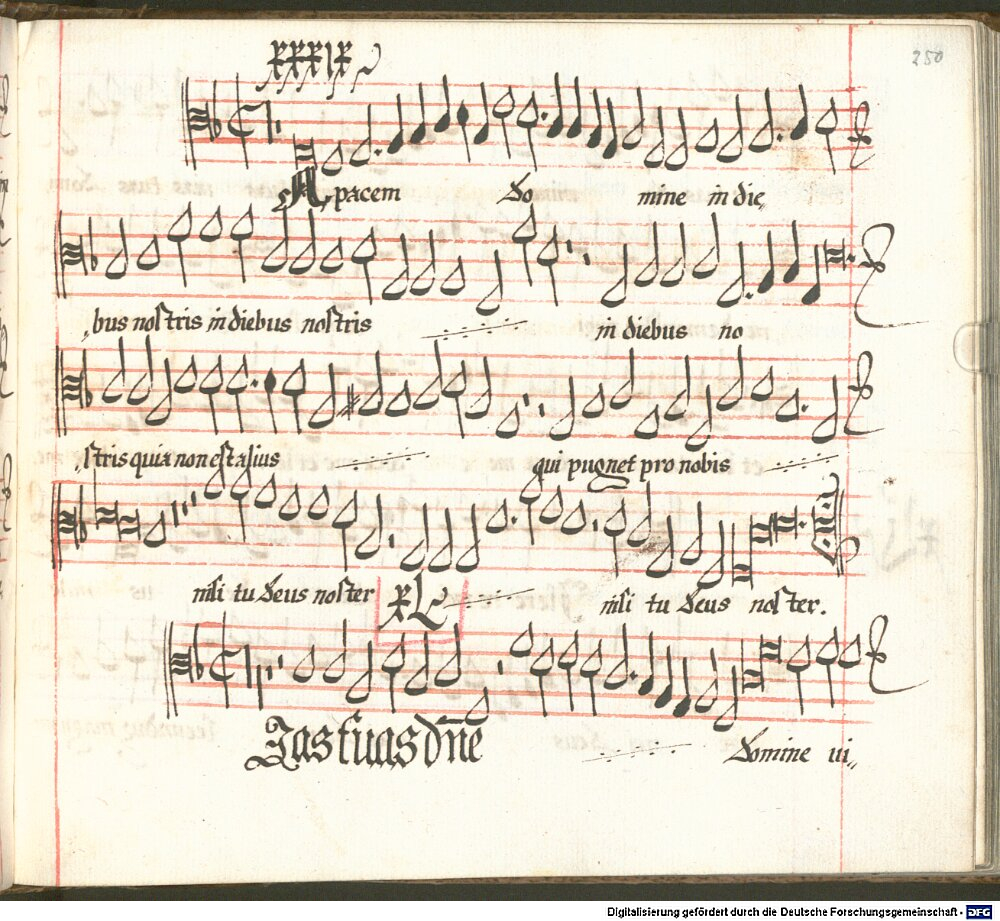 XXXIX
250
A pacem Do mine in die,
bus nostris in diebus nostris in diebus no
stris quia non est alius qui pugnet pro nobis
nisi tu deus noster nisi tu deus noster.
XL
Ias tuas dñe Domine ui,,
Digitalisierung gefördert durch die Deutsche Forschungsgemeinschaft - DFG